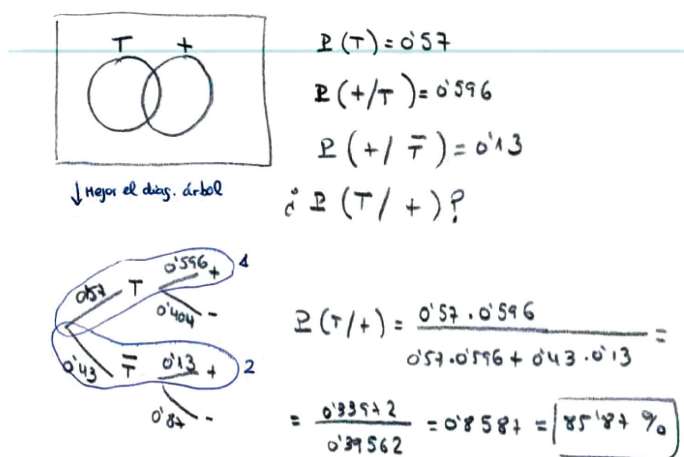 T +
P(T)=0'57
P(+/T)=0'596
P(+/T̅)=0'13
↓ Mejor el diag. árbol
¿P(T/+)?
0'57 T 0'596 + 1
0'404 -
0'43 T̅ 0'13 + 2
0'87 -
P(T/+) = 0'57·0'596 / 0'57·0'596 + 0'43·0'13 =
= 0'33972 / 0'39562 = 0'8587 = 85'87 %